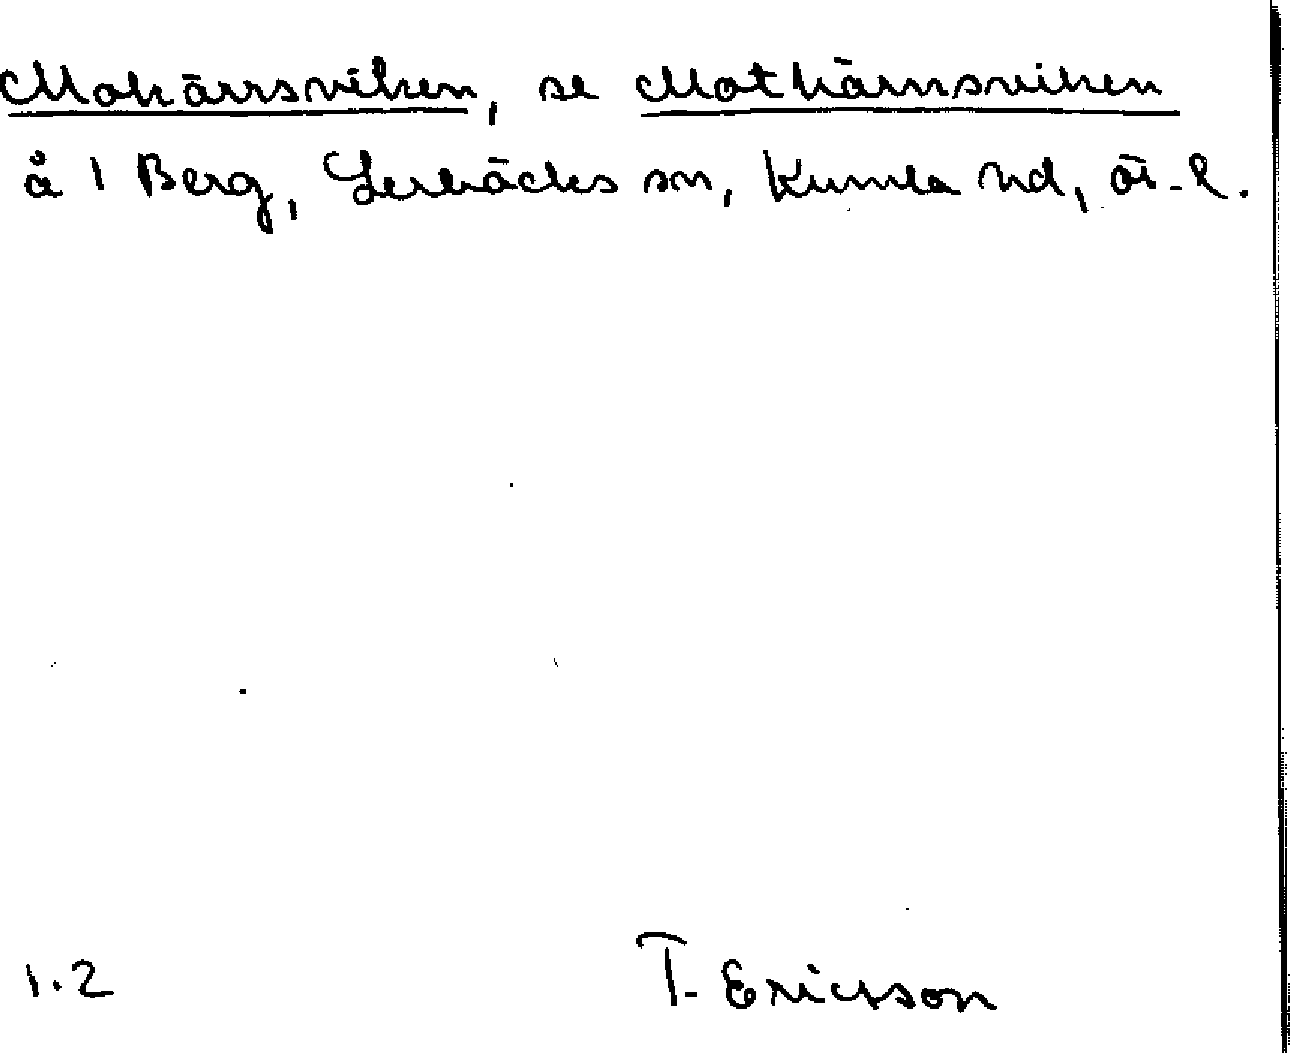 Mokärrsviken, se Motkärnsviken
å 1 Berg, Lerbäcks sn, Kumla hd, Ör. l.
1.2
T. Ericsson